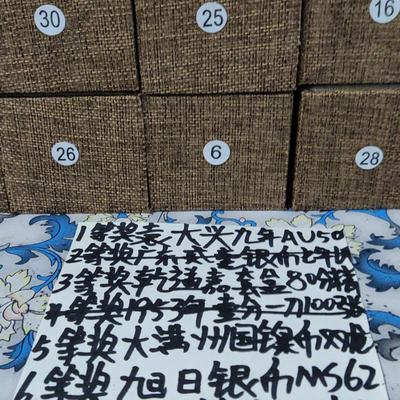 30 25 16
26 6 28
1等奖袁大头九年AU50
2等奖
3等奖乾通嘉套盒80
4等奖1953年壹分一刀100张
5等奖大满州国镍币双龙
6等奖旭日银币MS62